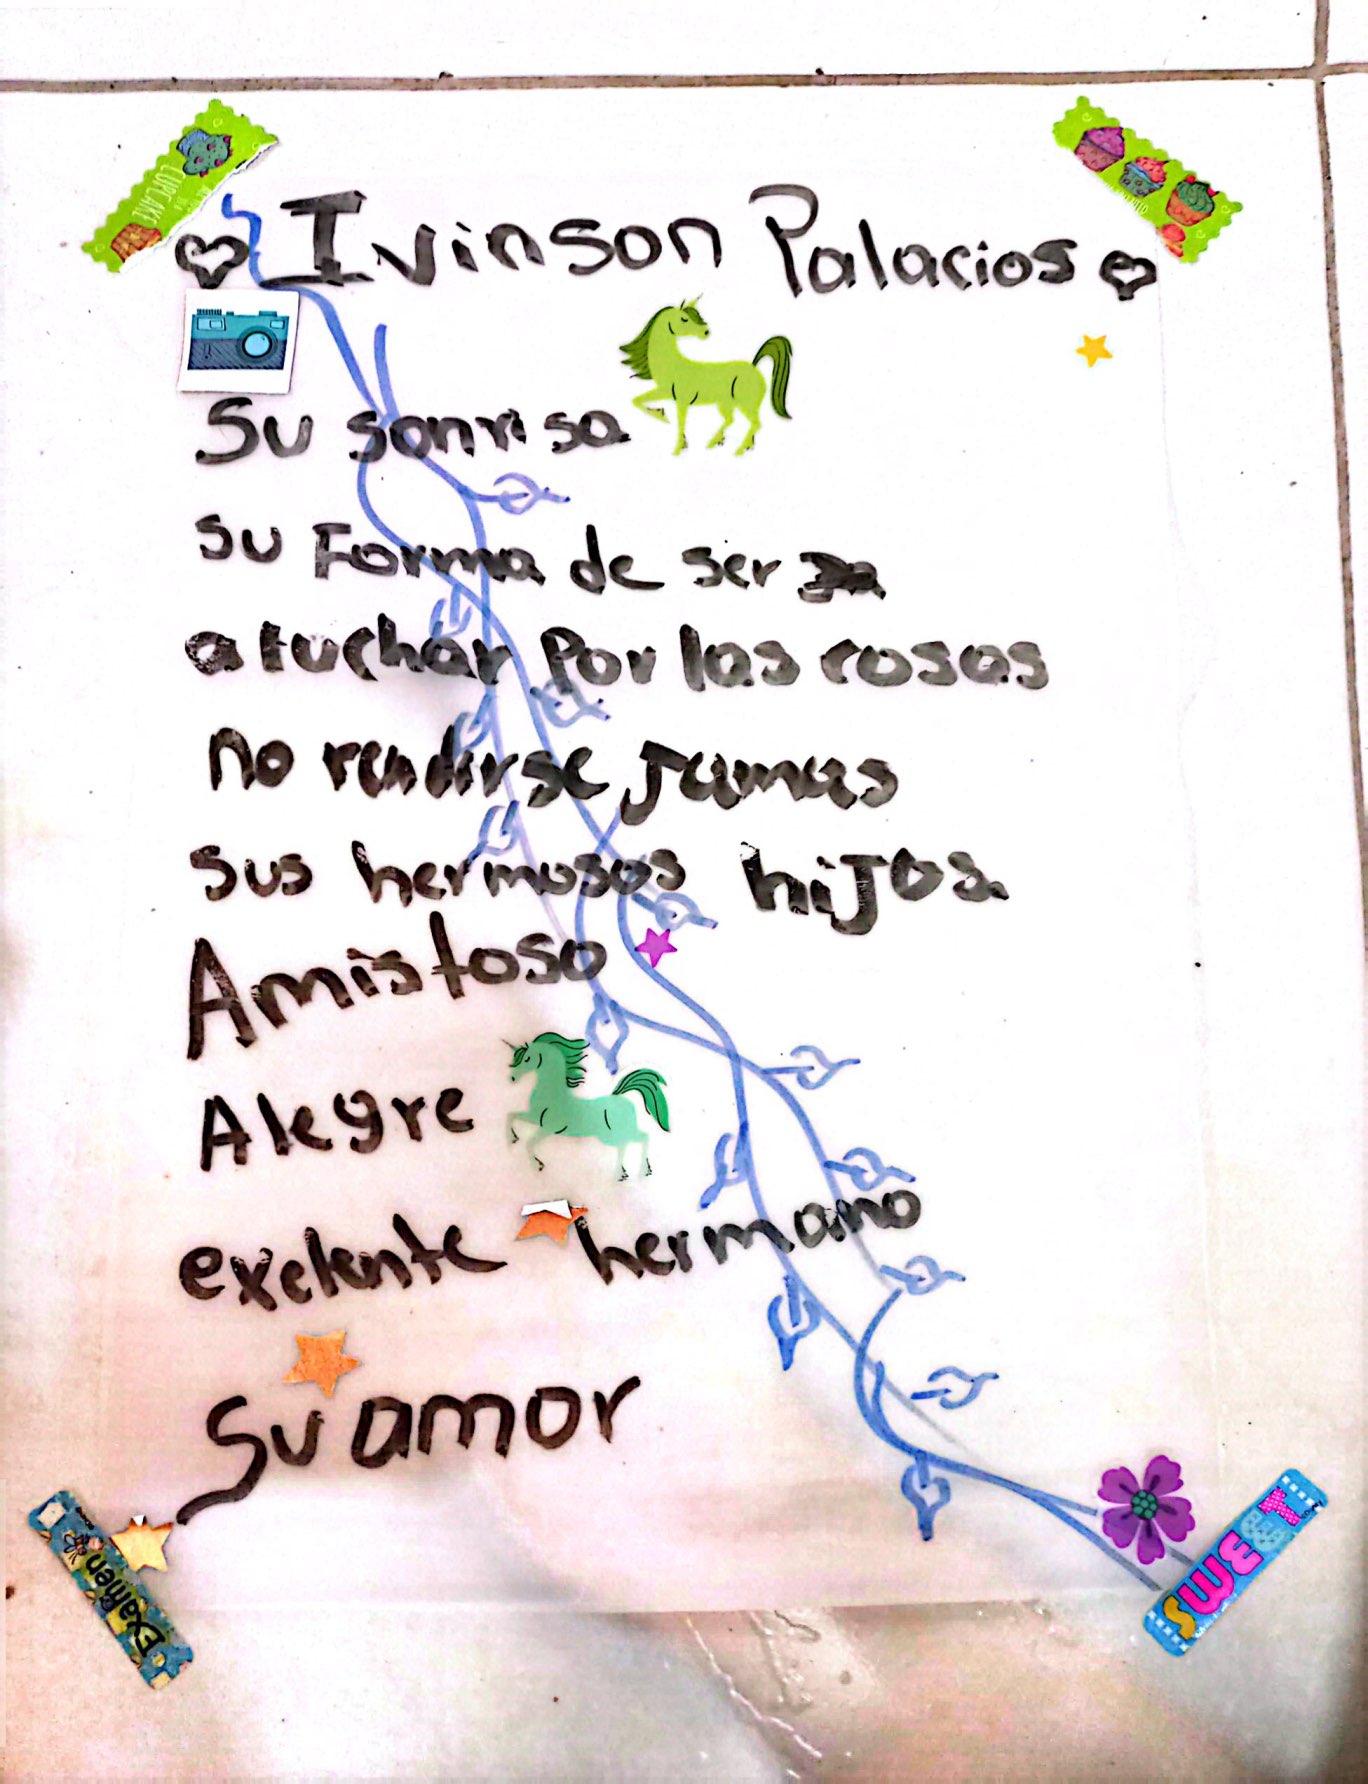 Ivinson Palacios
Su sonrisa
su Forma de ser
a luchar Por las cosas
no rendirse Jamas
sus hermosos hiJos.
Amistoso
Alegre
exelente hermano
Su amor
CUPCAKE
Examen
SWEET